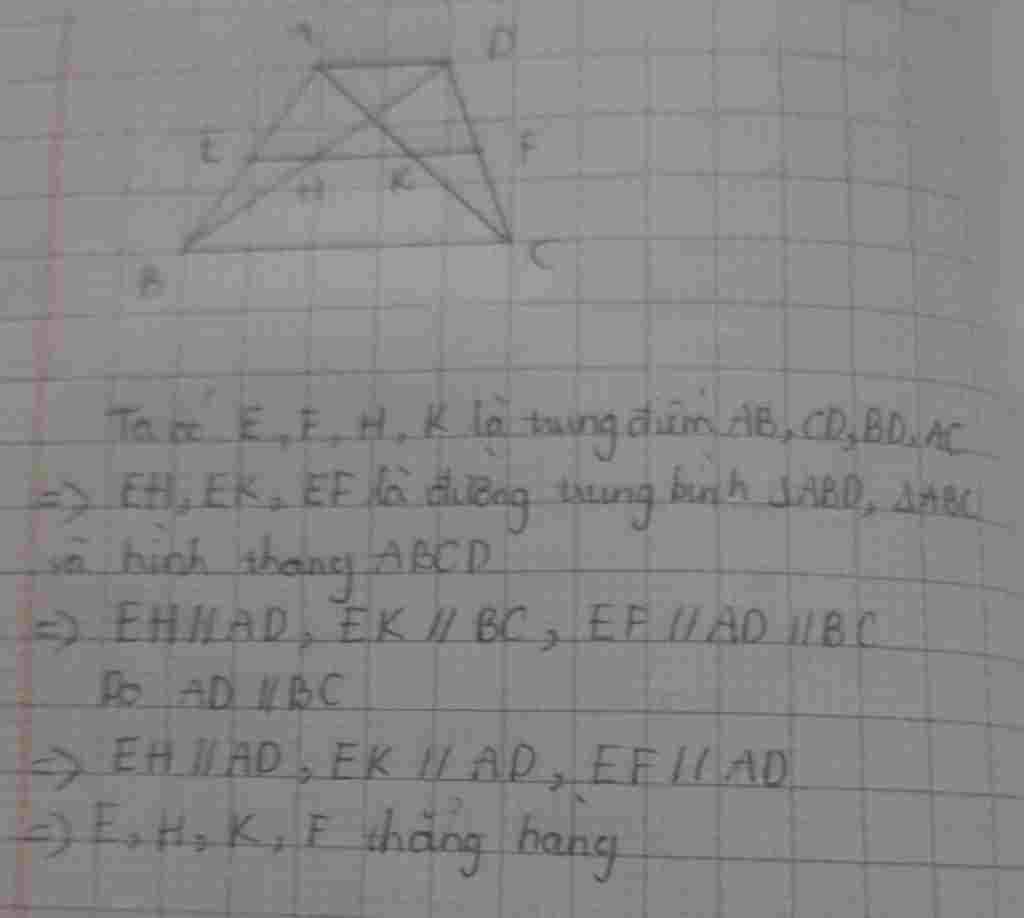 A D
E F
H K
B C
Ta có E, F, H, K là trung điểm AB, CD, BD, AC
=> EH, EK, EF là đường trung bình ΔABD, ΔABC
và hình thang ABCD
=> EH // AD, EK // BC, EF // AD // BC
Do AD // BC
=> EH // AD, EK // AD, EF // AD
=> E, H, K, F thẳng hàng